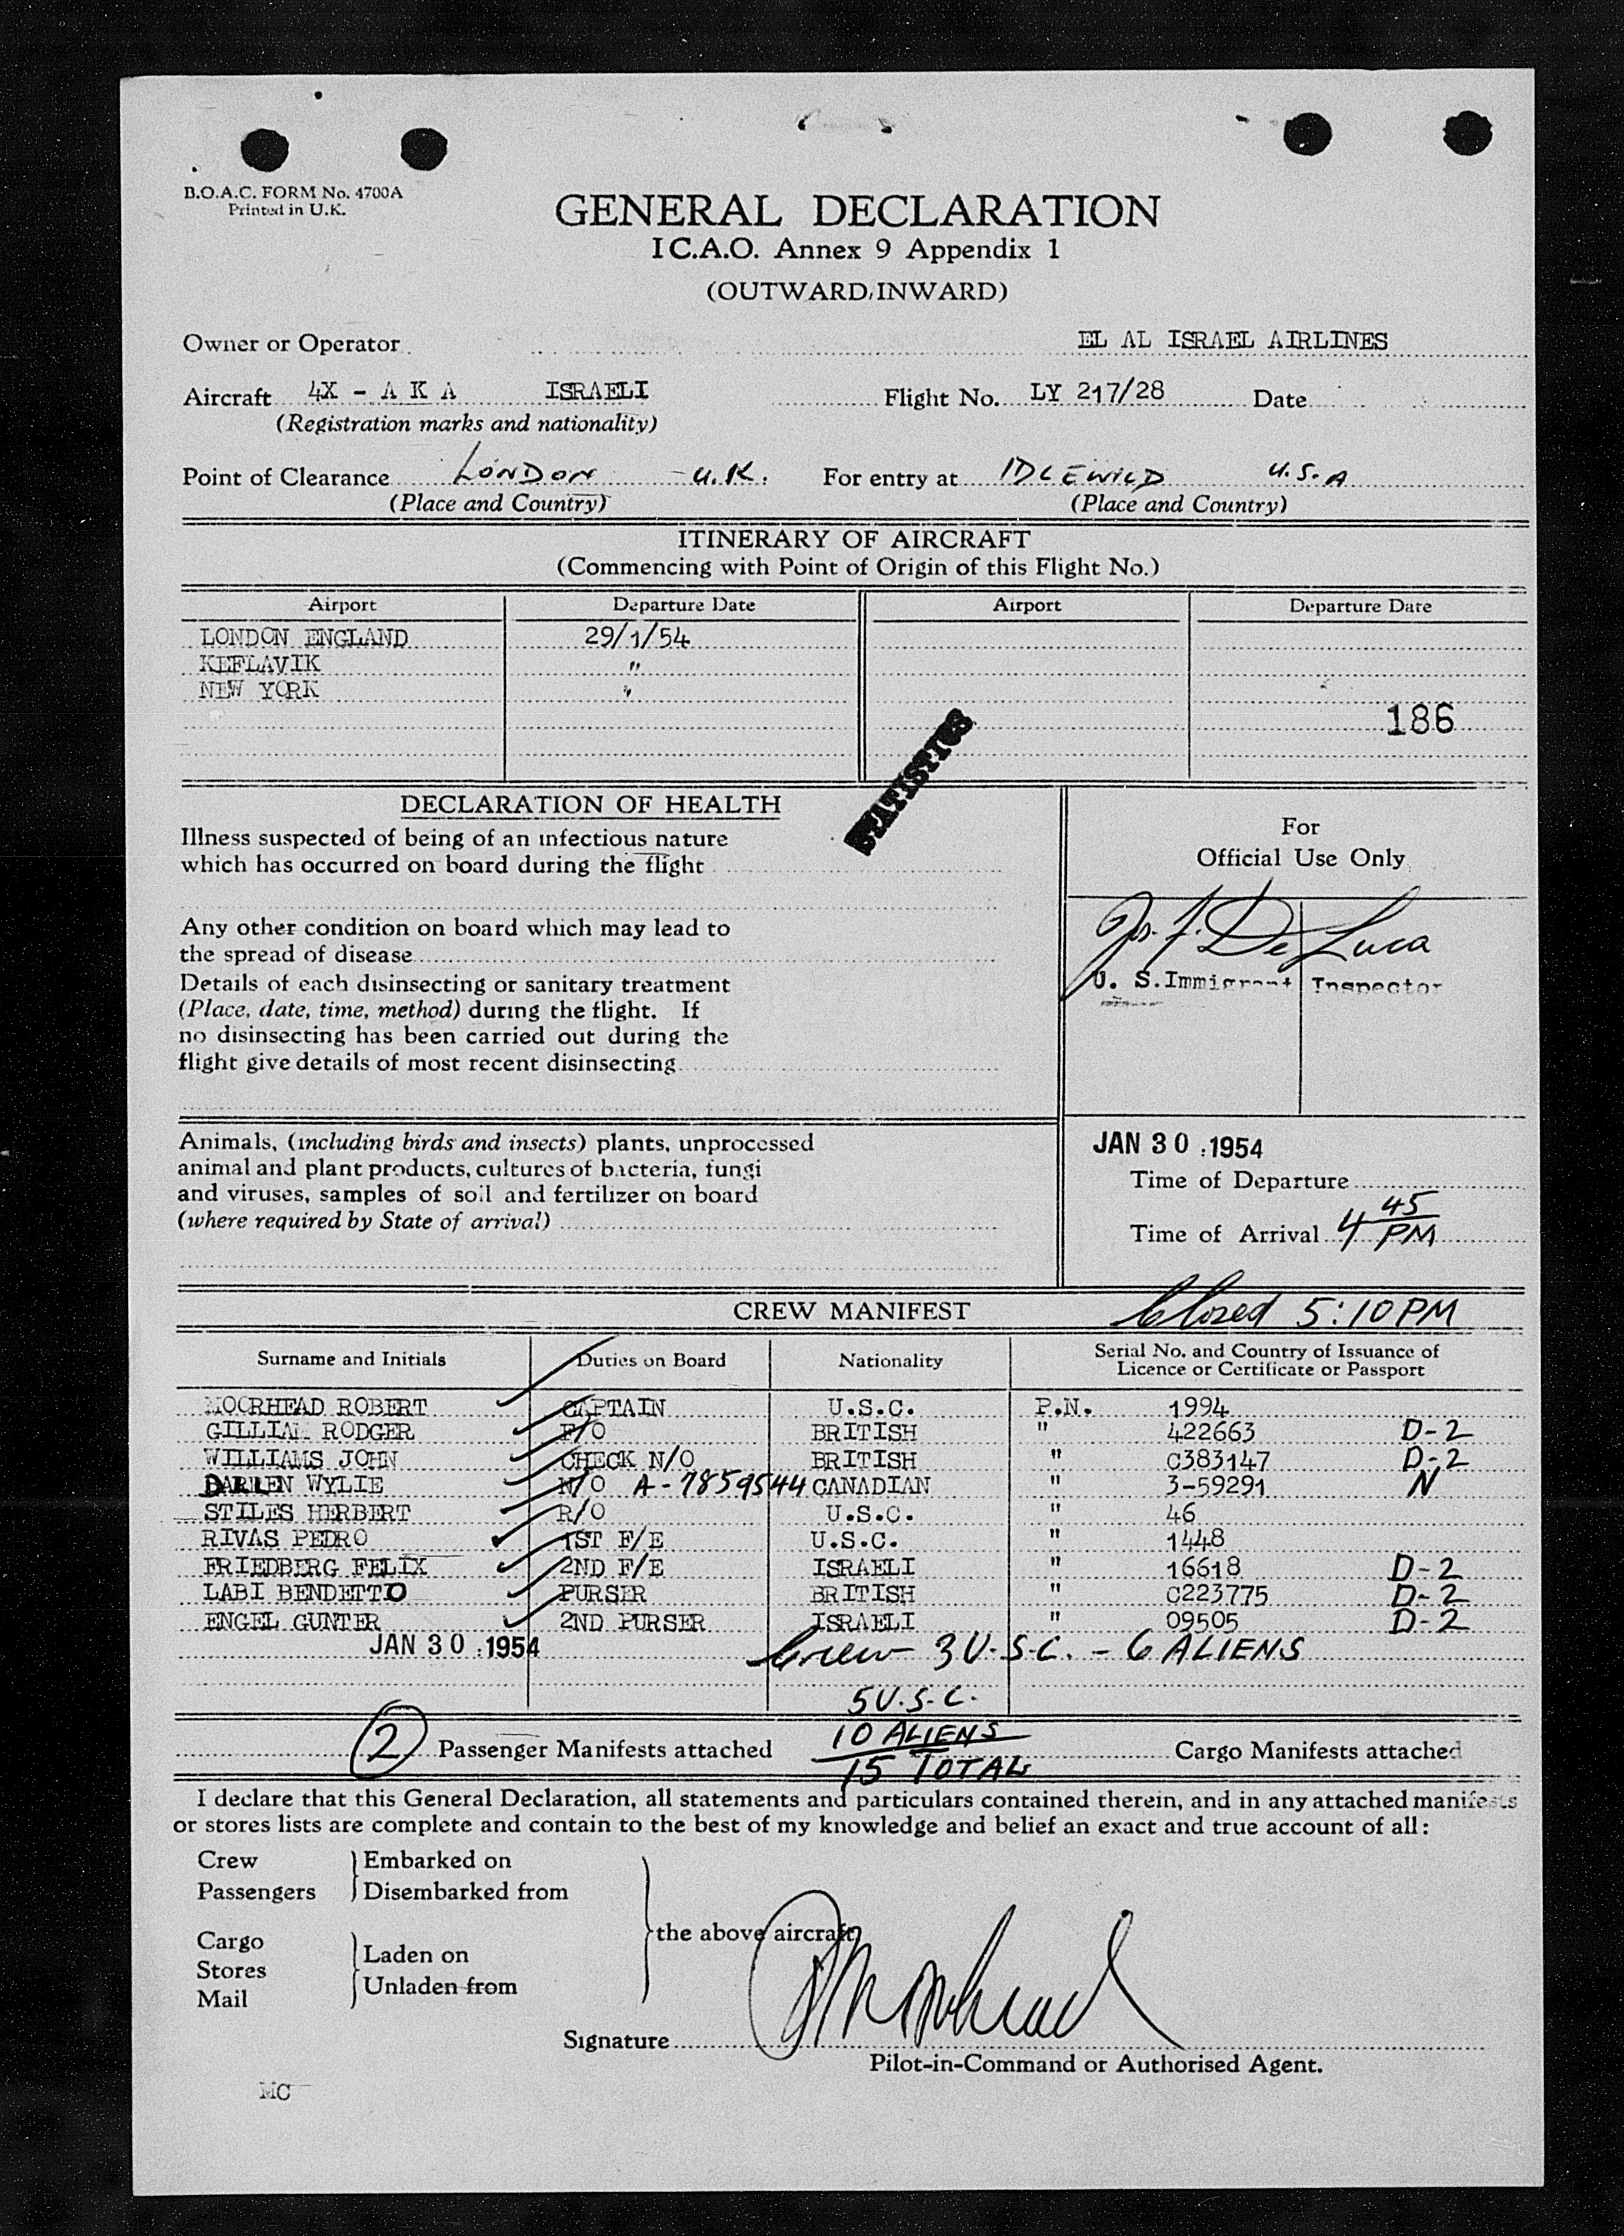 B.O.A.C. FORM No. 4700A
Printed in U.K.
GENERAL DECLARATION
I C.A.O. Annex 9 Appendix 1
(OUTWARD/INWARD)
Owner or Operator EL AL ISRAEL AIRLINES
Aircraft 4X - A K A ISRAELI Flight No. LY 217/28 Date
(Registration marks and nationality)
Point of Clearance LONDON - U.K. For entry at IDLEWILD U.S.A
(Place and Country) (Place and Country)
ITINERARY OF AIRCRAFT
(Commencing with Point of Origin of this Flight No.)
Airport Departure Date Airport Departure Date
LONDON ENGLAND 29/1/54
KEFLAVIK "
NEW YORK "
186
STATISTICS
DECLARATION OF HEALTH
Illness suspected of being of an infectious nature
which has occurred on board during the flight
Any other condition on board which may lead to
the spread of disease
Details of each disinsecting or sanitary treatment
(Place, date, time, method) during the flight. If
no disinsecting has been carried out during the
flight give details of most recent disinsecting
For
Official Use Only
Jos. F. De Luca
U. S. Immigrant Inspector
Animals, (including birds and insects) plants, unprocessed
animal and plant products, cultures of bacteria, fungi
and viruses, samples of soil and fertilizer on board
(where required by State of arrival)
JAN 30 1954
Time of Departure
Time of Arrival 4 45 PM
CREW MANIFEST Closed 5:10 PM
Surname and Initials Duties on Board Nationality Serial No. and Country of Issuance of
Licence or Certificate or Passport
MOORHEAD ROBERT CAPTAIN U.S.C. P.N. 1994
GILLIAM RODGER F/O BRITISH " 422663 D-2
WILLIAMS JOHN CHECK N/O BRITISH " C383147 D-2
WYLIE N/O A-7859544 CANADIAN " 3-59291 N
STILES HERBERT R/O U.S.C. " 46
RIVAS PEDRO 1ST F/E U.S.C. " 1448
FRIEDBERG FELIX 2ND F/E ISRAELI " 16618 D-2
LABI BENDETTO PURSER BRITISH " C223775 D-2
ENGEL GUNTER 2ND PURSER ISRAELI " 09505 D-2
JAN 30 1954 Crew 3 U.S.C. - 6 ALIENS
5 U.S.C.
10 ALIENS
2 Passenger Manifests attached Cargo Manifests attached
15 TOTAL
I declare that this General Declaration, all statements and particulars contained therein, and in any attached manifests
or stores lists are complete and contain to the best of my knowledge and belief an exact and true account of all:
Crew Embarked on
Passengers Disembarked from
the above aircraft.
Cargo
Stores Laden on
Mail Unladen from
Signature R Moorhead
Pilot-in-Command or Authorised Agent.
MC